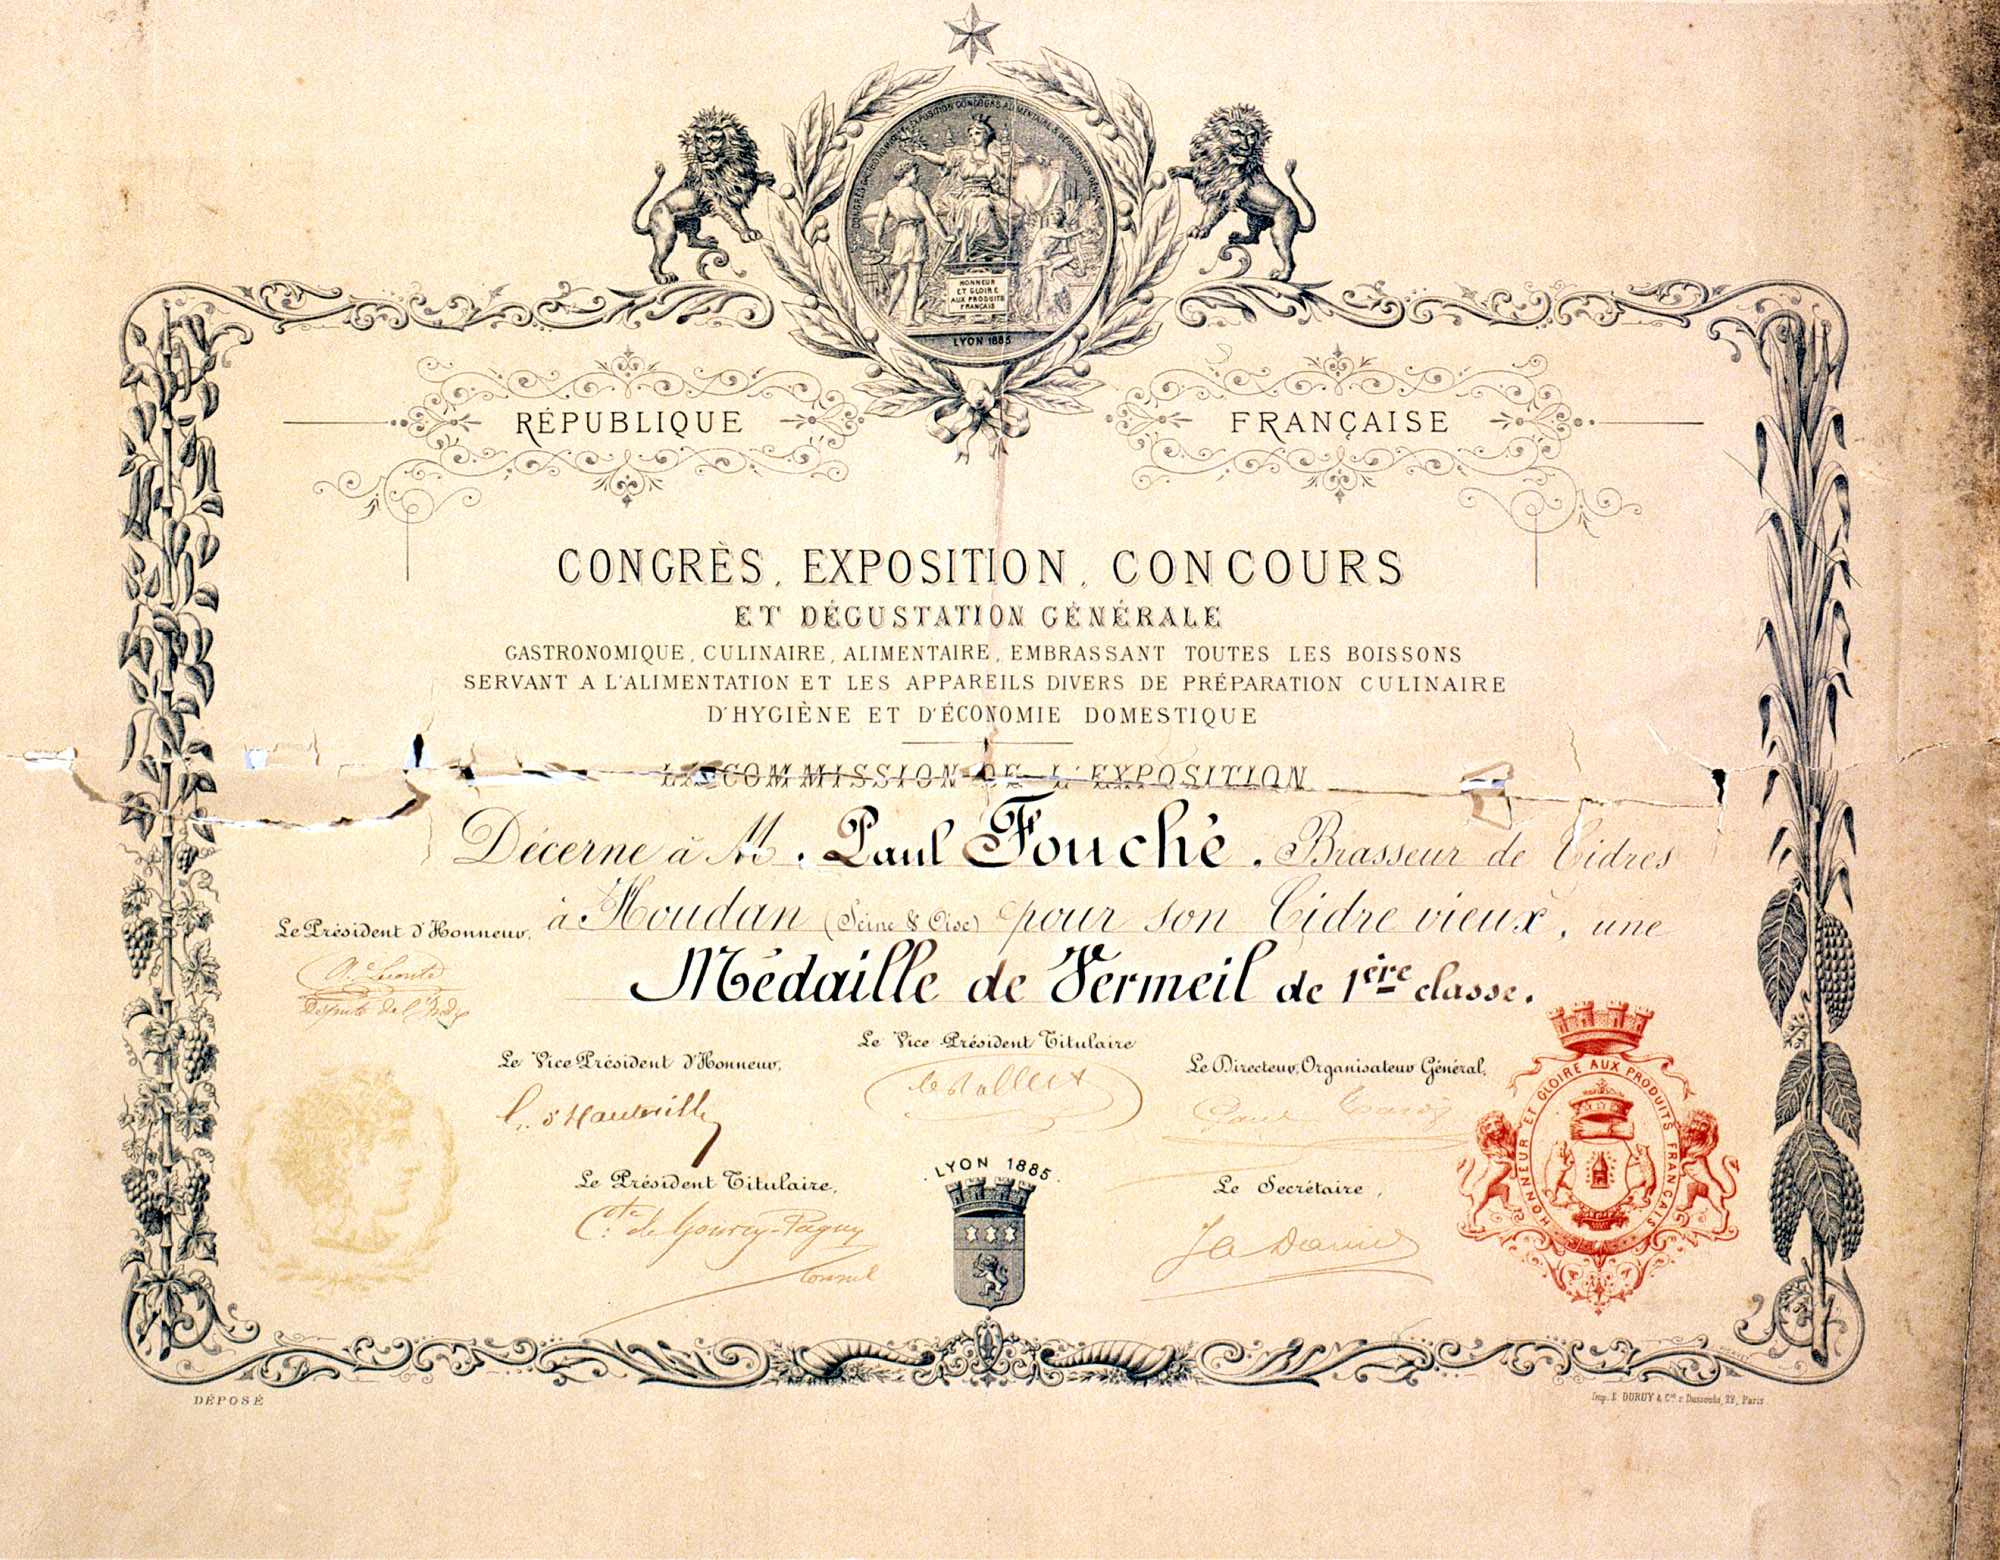 CONGRÈS GASTRONOMIQUE EXPOSITION CONCOURS ALIMENTAIRE & DÉGUSTATION
HONNEUR
ET GLOIRE
AUX PRODUITS
FRANÇAIS
LYON 1885
RÉPUBLIQUE FRANÇAISE
CONGRÈS, EXPOSITION, CONCOURS
ET DÉGUSTATION GÉNÉRALE
GASTRONOMIQUE, CULINAIRE, ALIMENTAIRE, EMBRASSANT TOUTES LES BOISSONS
SERVANT A L'ALIMENTATION ET LES APPAREILS DIVERS DE PRÉPARATION CULINAIRE
D'HYGIÈNE ET D'ÉCONOMIE DOMESTIQUE
LA COMMISSION DE L'EXPOSITION
Décerne à M. Paul Fouché. Brasseur de Cidres
à Houdan (Seine & Oise) pour son Cidre vieux, une
Médaille de Vermeil de 1ère classe.
Le Président d'Honneur,
Le Vice Président d'Honneur,
Le Vice Président Titulaire
Le Directeur, Organisateur Général,
Le Président Titulaire,
Le Secrétaire,
LYON 1885.
HONNEUR ET GLOIRE AUX PRODUITS FRANÇAIS
DÉPOSÉ
Imp. S. DURUY & Cie r. Dussoubs, 22, Paris